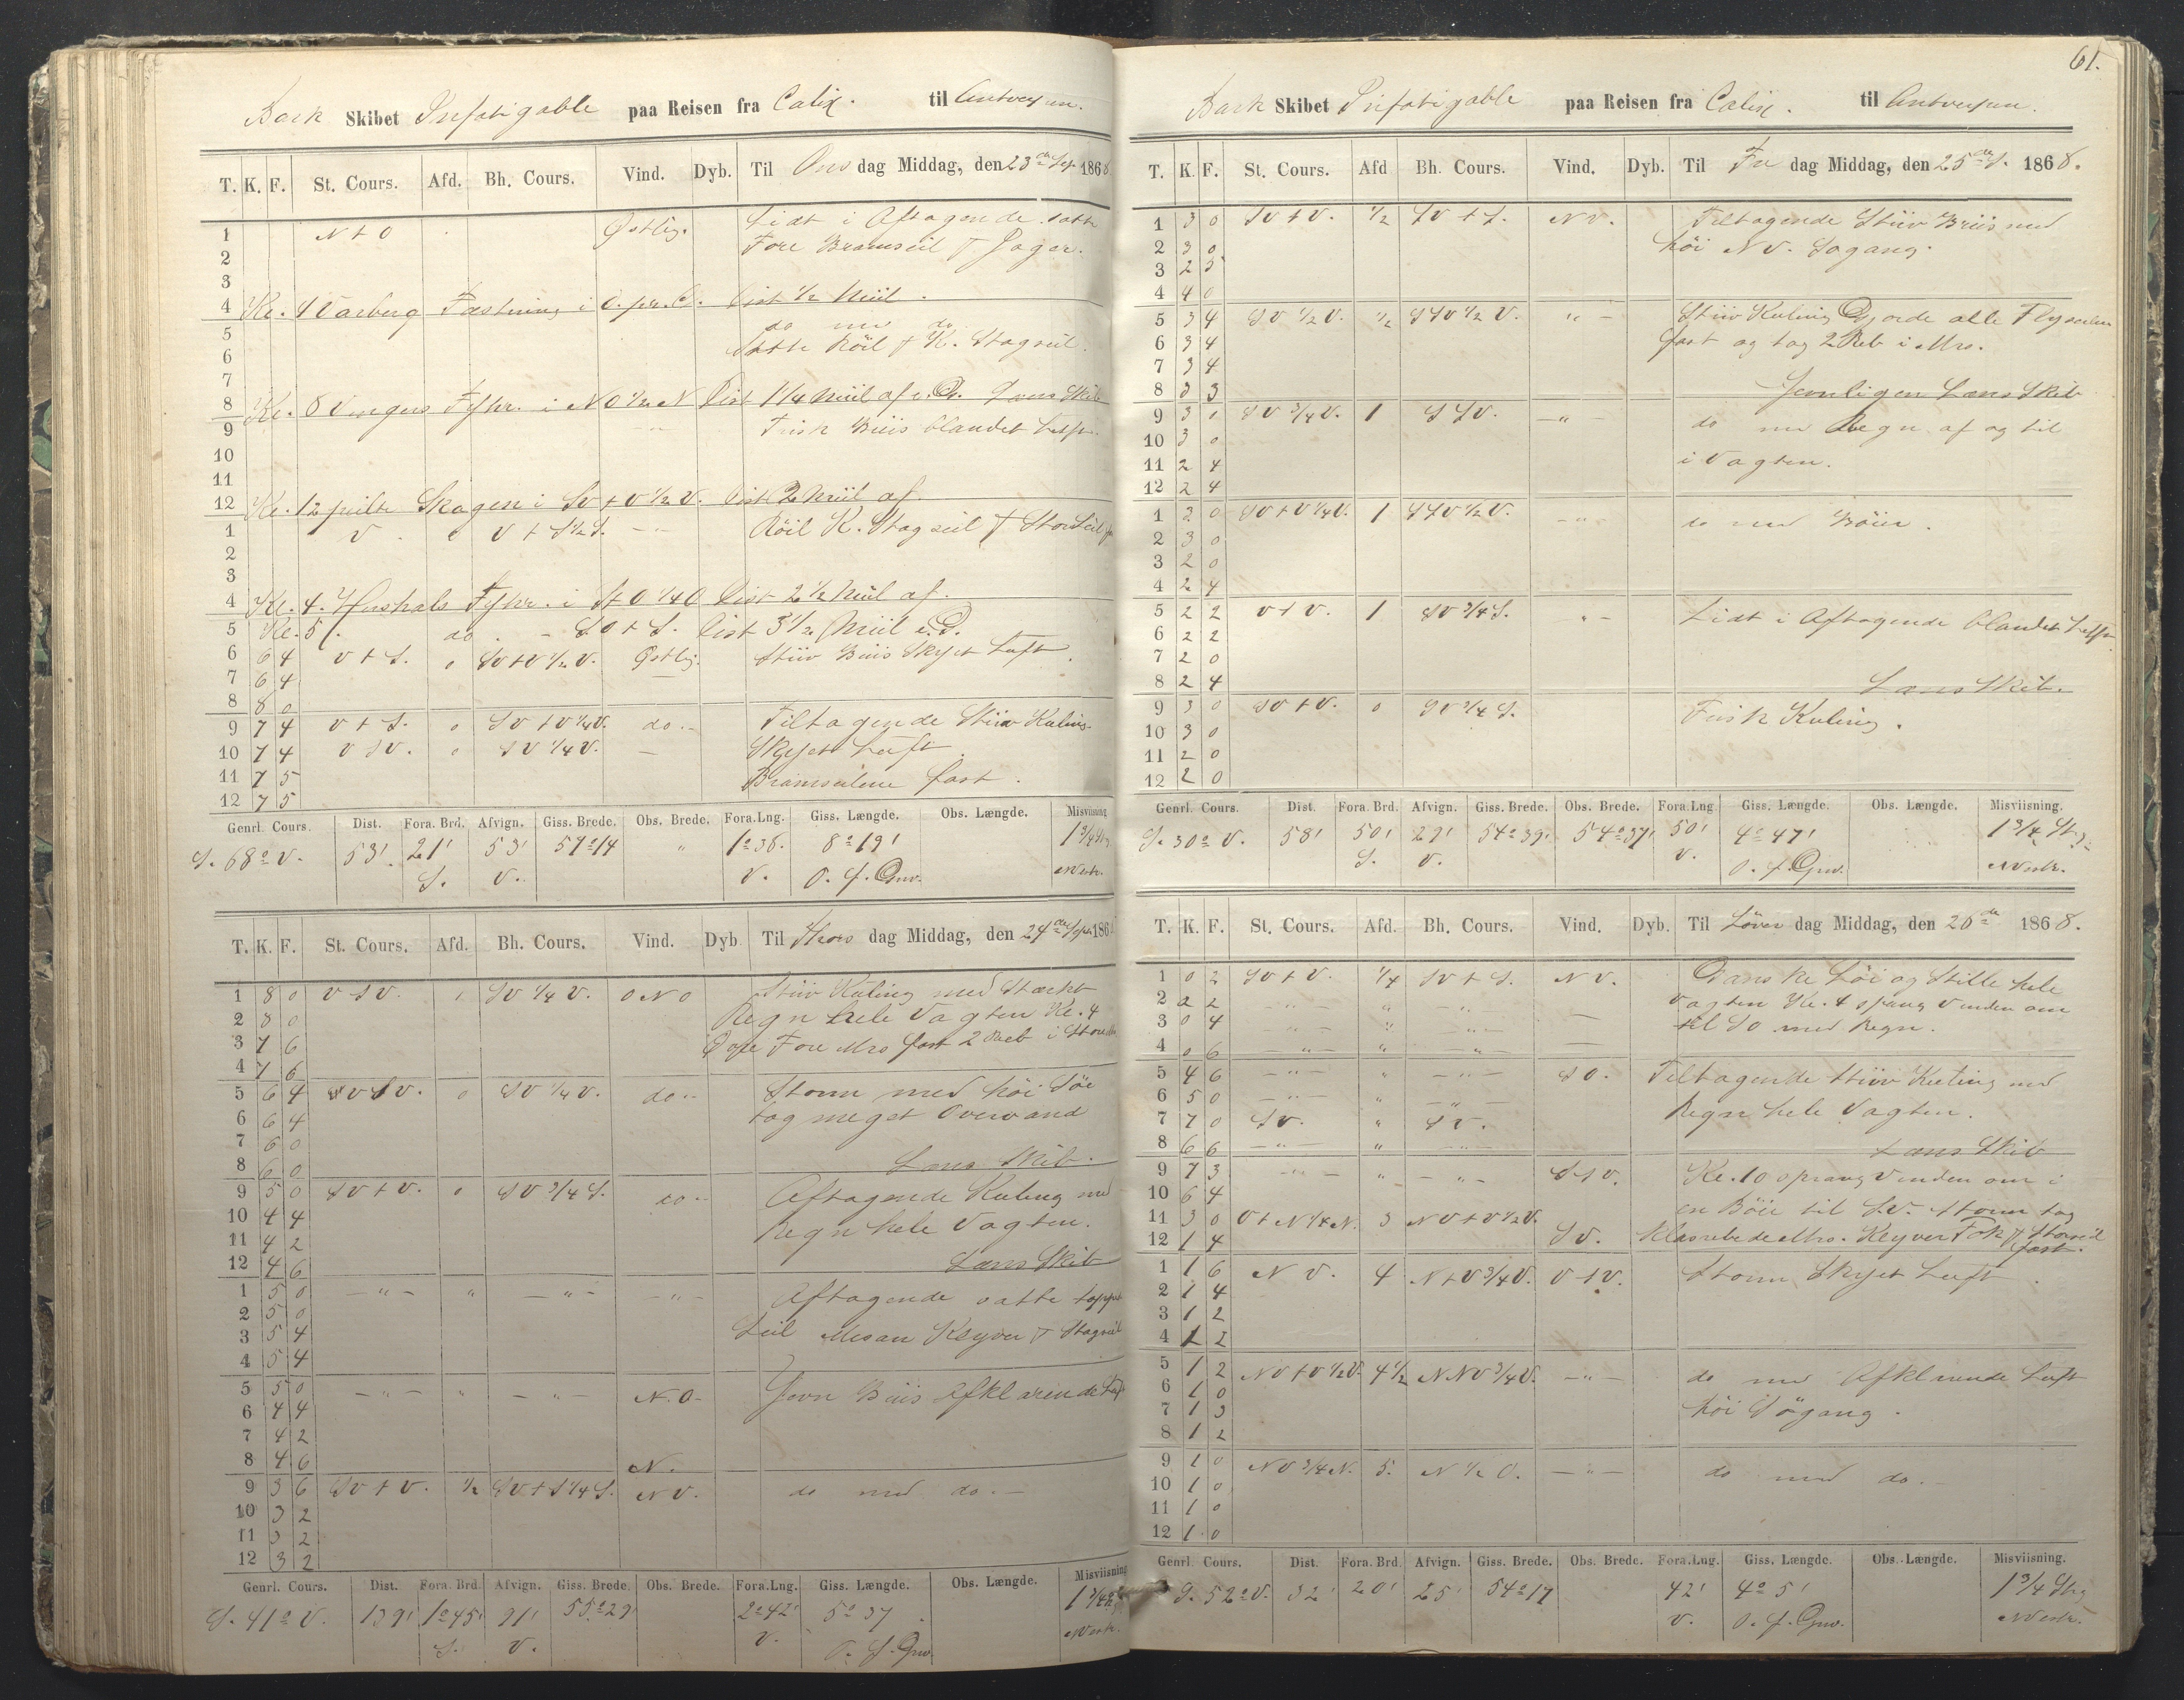 Bark Skibet Infatigable paa Reisen fra Calix. til Antverpen.
T. K. F. St. Cours. Afd. Bh. Cours. Vind. Dyb. Til Ons dag Middag, den 23de Sep 1868
1 N t O Østlig. Lidt i Aftagende satte
2 Fore Bramseil & Jager.
3
4 Kl. 4 Varberg Fæstning i O. pr. C. Dist ½ Miil.
5 do med do
6 Satte Röil & K. Stagseil.
7
8 Kl. 8 Vingers Fyhr. i NO ½ N Dist 1 1/4 Miil af e. G. Læns Skib
9 Frisk Briis blandet Luft.
10
11
12 Kl. 12 peilte Skagen i SV t V ½ V. Dist 2 Miil af.
1 V. 0 V t S ½ S. Röil K. Stagseil & StorSeil
2
3
4 Kl. 4. Hirshals Fyhr. i St O 1/4 O Dist 2 ½ Miil af.
5 Kl. 5 do. SO t S. Dist 3 ½ Miil e. G.
6 6 4 V t S. 0 SV t V ½ V. Østlig. Stiiv Briis Skyet Luft
7 6 4
8 8 0
9 7 4 V t S. 0 SV t V 1/4 V. do.. Tiltagende Stiiv Kuling
10 7 4 V SV. 0 SV 1/4 V. — Skyet Luft
11 7 5 Bramseilene fast.
12 7 5
Genrl. Cours. Dist. Fora. Brd. Afvign. Giss. Brede. Obs. Brede. Fora.Lng. Giss. Længde. Obs. Længde. Misviisning
S. 68° V. 53' 21' 53' 57°14 " 1°36. 8°19' 1 3/4 Strg
S. V. V. O. f. Grw. NVestr.
T. K. F. St. Cours. Afd. Bh. Cours. Vind. Dyb Til Thors dag Middag, den 24de Sept 186
1 8 0 V SV. SV 1/4 V. ONO Stiiv Kuling med Stærkt
2 8 0 Regn hele Vagten Kl. 4
3 7 6 Fore Mrs fast 2 Reb i Store
4 7 6
5 6 4 SV. 0 SV 1/4 V. do.. Storm med höi Söe
6 6 4 tog meget Overvand
7 6 0
8 6 0 Læns Skib.
9 5 0 SV t V. 0 SV 3/4 S. do.. Aftagende Kuling med
10 4 4 Regn hele Vagten.
11 4 2
12 4 6 Læns Skib
1 5 0 — " — " — " — — " — Aftagende satte
2 5 0 Seil Mesan Klyver & Stagseil
3 5 4
4 5 4
5 5 0 — " — " — " — N. O. Jevn Briis Afklarende Luft
6 4 4
7 4 2
8 4 6 N.
9 3 6 SV t V. ½ SV t S 1/4 S. NV. do med do. —
10 3 2
11 3 2
12 3 2
Genrl. Cours. Dist. Fora. Brd Afvign. Giss. Brede. Obs. Brede. Fora.Lng. Giss. Længde. Obs. Længde. Misviisning
S. 41° V. 139' 1°45' 91' 55°29' 2°42' 5°37 1 3/4
S. V. V. O. f. Grw. NVestr.
61.
Bark Skibet Infatigable paa Reisen fra Calix. til Antverpen.
T. K. F. St. Cours. Afd Bh. Cours. Vind. Dyb. Til Fre dag Middag, den 25de S. 1868.
1 3 0 SV t V. ½ SV t S. NV. Tiltagende Stiiv Briis med
2 3 0 höi NV. Sögang.
3 2 5
4 4 0
5 3 4 SV ½ V. ½ SSV ½ V. " — Stiiv Kuling Gjorde alle Flyseilene
6 3 4 fast og tog 2 Reb i Mrs.
7 3 4
8 3 3 Jevnligen Læns Skib
9 3 1 SV 3/4 V. 1 SSV. — " — do med Regn af og til
10 3 0 i Vagten.
11 2 4
12 2 4
1 2 0 SV t V 1/4 V. 1 SSV ½ V. — " — do med Böier.
2 3 0
3 2 0
4 2 4
5 2 2 V t V. 1 SV 3/4 S. " — Lidt i Aftagende blandet Luft
6 2 2
7 2 0
8 2 4 Læns Skib.
9 3 0 SV t V. 0 SV 3/4 S. Frisk Kuling.
10 3 0
11 2 0
12 2 0
Genrl. Cours. Dist. Fora. Brd. Afvign. Giss. Brede. Obs. Brede. Fora.Lng. Giss. Længde. Obs. Længde. Misviisning.
S. 30° V. 58' 50' 29' 54°39' 54°37' 50' 4°47' 1 3/4 Strg
S. V. V. O. f. Grw. NVestr.
T. K. F. St. Cours. Afd. Bh. Cours. Vind. Dyb. Til Löver dag Middag, den 26de 1868.
1 0 2 SV t V. 1/4 SV t S. NV. Ganske Löi og Stille hele
2 2 2 — " — " — " — Vagten Kl. 4 sprang Vinden om
3 0 4 — " — " — " — — til SO med Regn.
4 0 6 — " — " — " — —
5 4 6 — " — " — " — SO. Tiltagende Stiiv Kuling med
6 5 0 — " — " — " — Regn hele Vagten.
7 7 0 SV. " SV.
8 6 6 — " — " — " — Læns Skib
9 7 3 — " — " — " — S t V. Kl. 10 sprang Vinden om i
10 6 4 en Böie til SV. Storm tog
11 3 0 V t N 1/4 N. 3 NV t V ½ V. SV. Klosrebede Mrs. Klyver Fok & Storseil
12 1 4 fast.
1 1 6 NV. 4 N t V 3/4 V. V t V. Storm Skyet Luft.
2 1 4
3 1 2
4 1 2
5 1 2 NV t V ½ V. 4 ½ NNV 3/4 V. — " — do med Afklarende Luft
6 1 0 höi Sögang.
7 1 3
8 1 2
9 1 0 NV 3/4 N. 5. N ½ O. — " — do med do. —
10 1 0
11 1 0
12 1 0
Genrl. Cours. Dist. Fora. Brd. Afvign. Giss. Brede. Obs. Brede. Fora.Lng. Giss. Længde. Obs. Længde. Misviisning.
S. 52° V. 32' 20' 25' 54°17 42' 4°5' 1 3/4 Strg
V. O. f. Grw. NVestr.